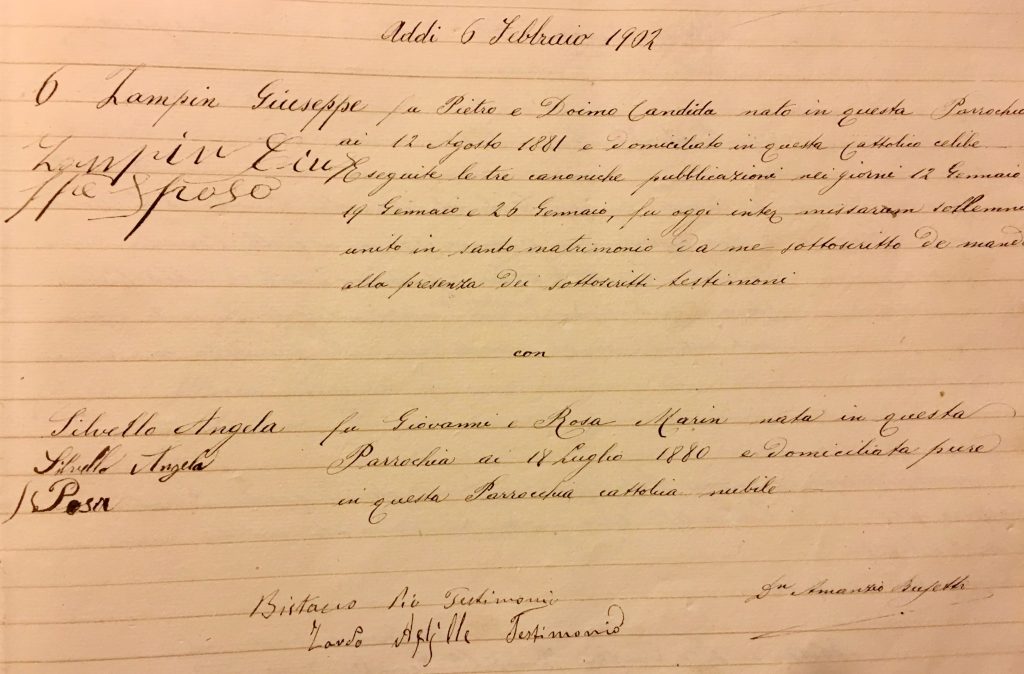 Addi 6 Febbraio 1902
6 Zampin Giuseppe fu Pietro e Doimo Candida nato in questa Parrochia
ai 12 Agosto 1881 e domiciliato in questa Cattolico celibe.
Zampin Giuse
ppe Sposo
Eseguite le tre canoniche pubblicazioni nei giorni 12 Gennaio
19 Gennaio e 26 Gennaio, fu oggi inter missarum sollemne
unito in santo matrimonio da me sottoscritto de mand
alla presenza dei sottoscritti testimoni
con
Silvello Angela fu Giovanni e Rosa Marin nata in questa
Silvello Angela
Parrochia ai 18 Luglio 1880 e domiciliata pure
Sposa
in questa Parrocchia cattolica nubile
Pio Testimonio
Zardo Testimonio
Dn Amanzio